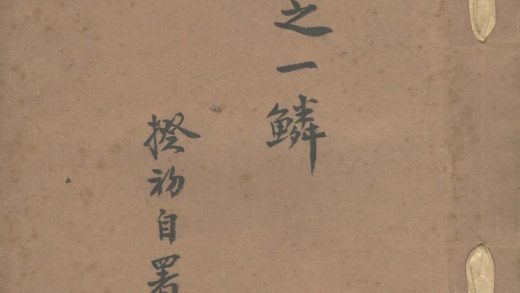 之一鱗
揆初自署